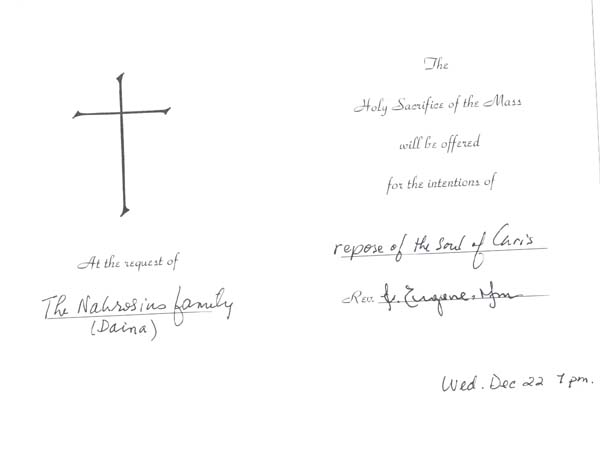 At the request of
The Nahrosius family
(Daina)
The
Holy Sacrifice of the Mass
will be offered
for the intentions of
repose of the soul of Chris
Rev. fr. Eugene
Wed. Dec 22 7 pm.